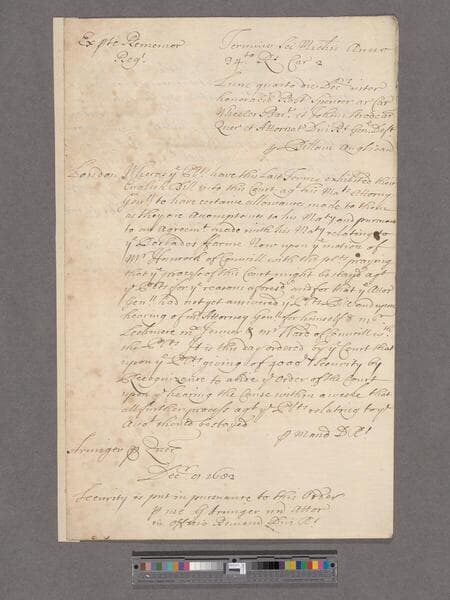 Ex pte Rememor
Regs
Termino Sci Michis Anno
34to Rs Car 2
Lune quarto die Decr inter
honorabil Robt Spencer ar Car
Wheeler Bart et Johem ar
Quer et Attornat Dni Rs Genl Deft
p Billam Anglicand
London Whereas ye Plts have this Last Terme exhibited their
English Bill into this Court agt his Mats Attorny
Genll to have certaine allowances made to them
as they are Accomptants to his Maty and pursuant
to an Agreemt made with his Maty relating to
ye Barbados farme Now upon ye motion of
Mr of Councill with the plts praying
that ye process of this Court might be stayd agt
ye Plts for ye reasons aforesd and for that ye Attor
Genll had not yet answered ye Plts Bill and upon
hearing of mr Attorney Genll for himselfe & mr
Leechmere mr Jenner & mr Ward of Councill with
the Plts It is this day ordered by ye Court that
upon ye Plts giving of 4000l Security by
Recognizance to abide ye Order of the Court
upon ye hearing the Cause within a weeke that
all further process agt ye Plts relating to ye
Acco should be stayed
p mand D Rs
Armiger p Quer
Decr 1682
Security is put in pursuance to this Order
p me G Armiger un Attor
in Offic Rememd Dni Rs